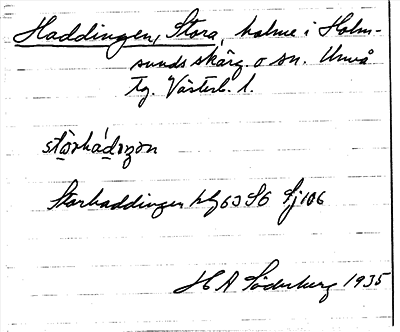 Haddingen, Stora, holme i Holm-
sunds skärg. o sn. Umeå
tg. Västerb. l.
Storhaddingen blg 63 S6 Sj 106
H A Söderberg 1935